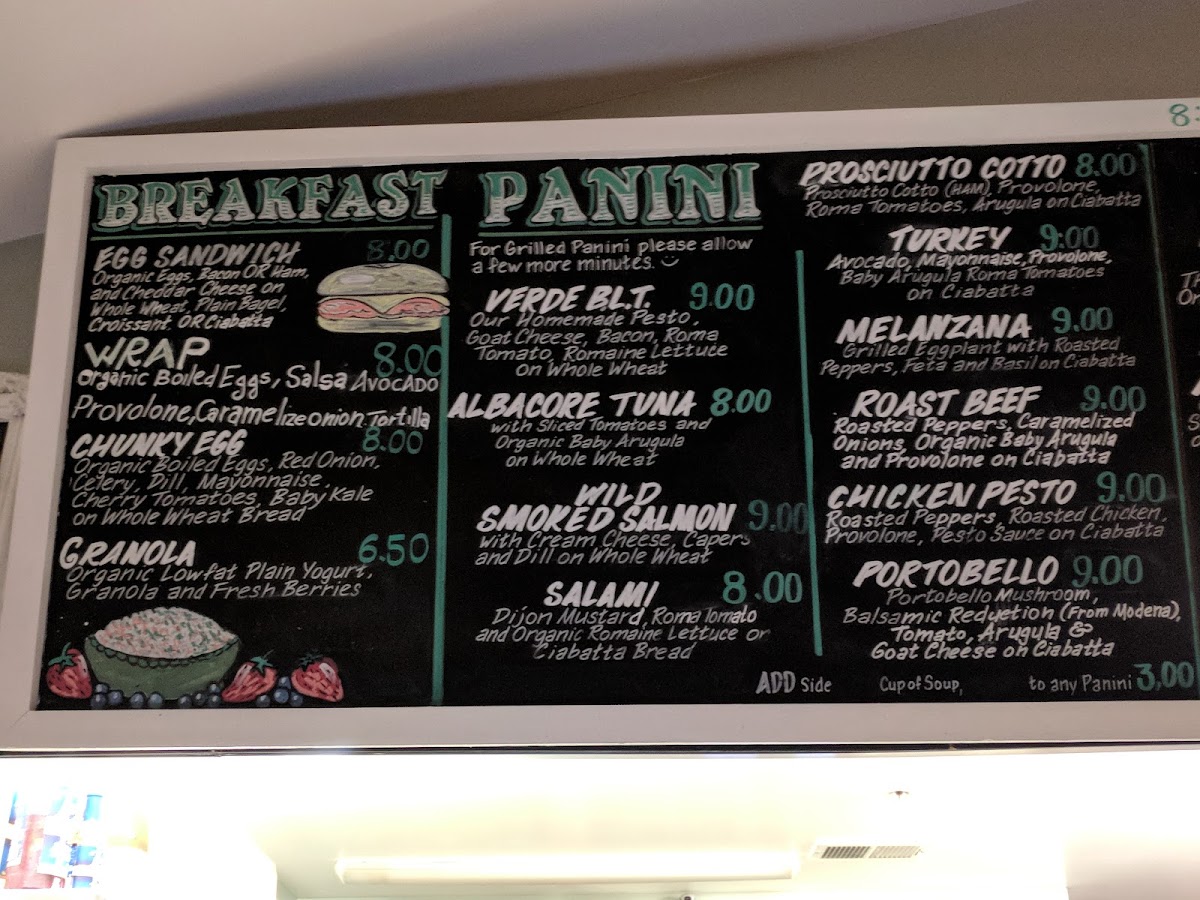 BREAKFAST
EGG SANDWICH 8.00
Organic Eggs, Bacon OR Ham,
and Cheddar Cheese on
Whole Wheat, Plain Bagel,
Croissant OR Ciabatta
WRAP 8.00
Organic Boiled Eggs, Salsa AVOCADO
Provolone, Caramelize onion Tortilla
CHUNKY EGG 8.00
Organic Boiled Eggs, Red Onion,
Celery, Dill, Mayonnaise,
Cherry Tomatoes, Baby Kale
on Whole Wheat Bread
GRANOLA 6.50
Organic Lowfat Plain Yogurt,
Granola and Fresh Berries
PANINI
For Grilled Panini please allow
a few more minutes.
VERDE BL.T. 9.00
Our Homemade Pesto,
Goat Cheese, Bacon, Roma
Tomato, Romaine Lettuce
on Whole Wheat
ALBACORE TUNA 8.00
with Sliced Tomatoes and
Organic Baby Arugula
on Whole Wheat
WILD
SMOKED SALMON 9.00
with Cream Cheese, Capers
and Dill on Whole Wheat
SALAMI 8.00
Dijon Mustard, Roma Tomato
and Organic Romaine Lettuce or
Ciabatta Bread
PROSCIUTTO COTTO 8.00
Prosciutto Cotto (HAM), Provolone,
Roma Tomatoes, Arugula on Ciabatta
TURKEY 9:00
Avocado, Mayonnaise, Provolone,
Baby Arugula Roma Tomatoes
on Ciabatta
MELANZANA 9.00
Grilled Eggplant with Roasted
Peppers, Feta and Basil on Ciabatta
ROAST BEEF 9.00
Roasted Peppers, Caramelized
Onions, Organic Baby Arugula
and Provolone on Ciabatta
CHICKEN PESTO 9.00
Roasted Peppers, Roasted Chicken,
Provolone, Pesto Sauce on Ciabatta
PORTOBELLO 9.00
Portobello Mushroom,
Balsamic Reduction (From Modena),
Tomato, Arugula &
Goat Cheese on Ciabatta
ADD Side Cup of Soup, to any Panini 3,00